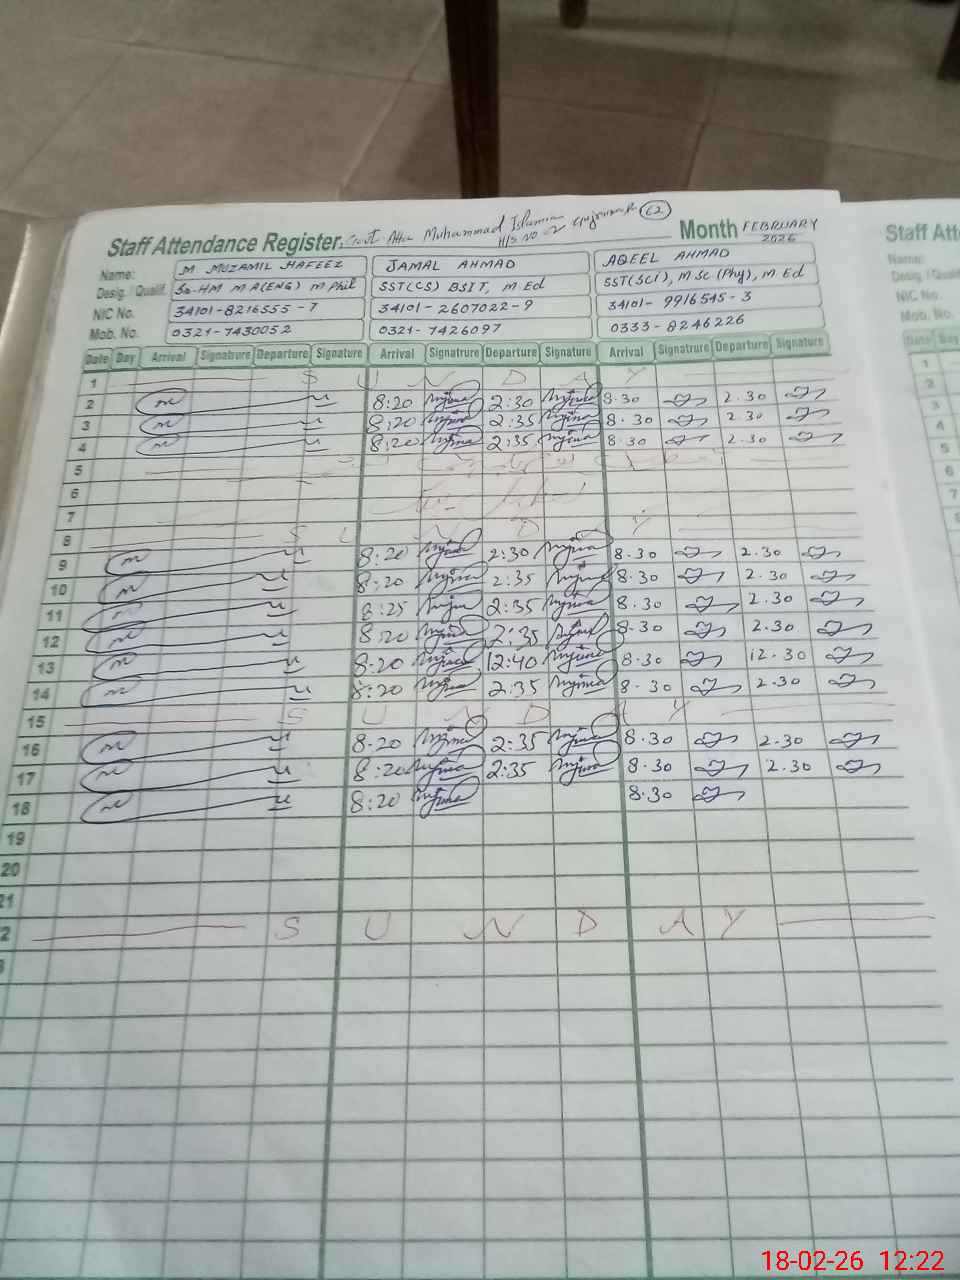 Staff Attendance Register. Govt Atta Muhammad Islamia H/S NO 2 Gujranwala 62 Month FEBRUARY 2026
Staff Atte
Name: M MUZAMIL HAFEEZ JAMAL AHMAD AQEEL AHMAD
Name:
Desig. / Qualif. Sr-HM MA(ENG) M Phil SST(CS) BSIT, M Ed SST(SCI), M.Sc (Phy), M Ed
Desig. / Qualif
NIC No. 34101-8216555-7 34101-2607022-9 34101-9916545-3
NIC No.
Mob. No. 0321-7430052 0321-7426097 0333-8246226
Mob. No.
Date Day Arrival Signatrure Departure Signature Arrival Signatrure Departure Signature Arrival Signatrure Departure Signature
Date Day
1 S U N D A Y
2 8:20 2:30 8.30 2.30
3 8:20 2:35 8.30 2.30
4 8:20 2:35 8.30 2.30
5
6
7
8 S U N D A Y
9 8:20 2:30 8.30 2.30
10 8:20 2:35 8.30 2.30
11 8:25 2:35 8.30 2.30
12 8:20 2:35 8.30 2.30
13 8:20 12:40 8.30 12.30
14 8:20 2:35 8.30 2.30
15 S U N D A Y
16 8:20 2:35 8.30 2.30
17 8:20 2:35 8.30 2.30
18 8:20 8.30
19
20
21
2 S U N D A Y
1
2
3
4
5
6
7
18-02-26 12:22